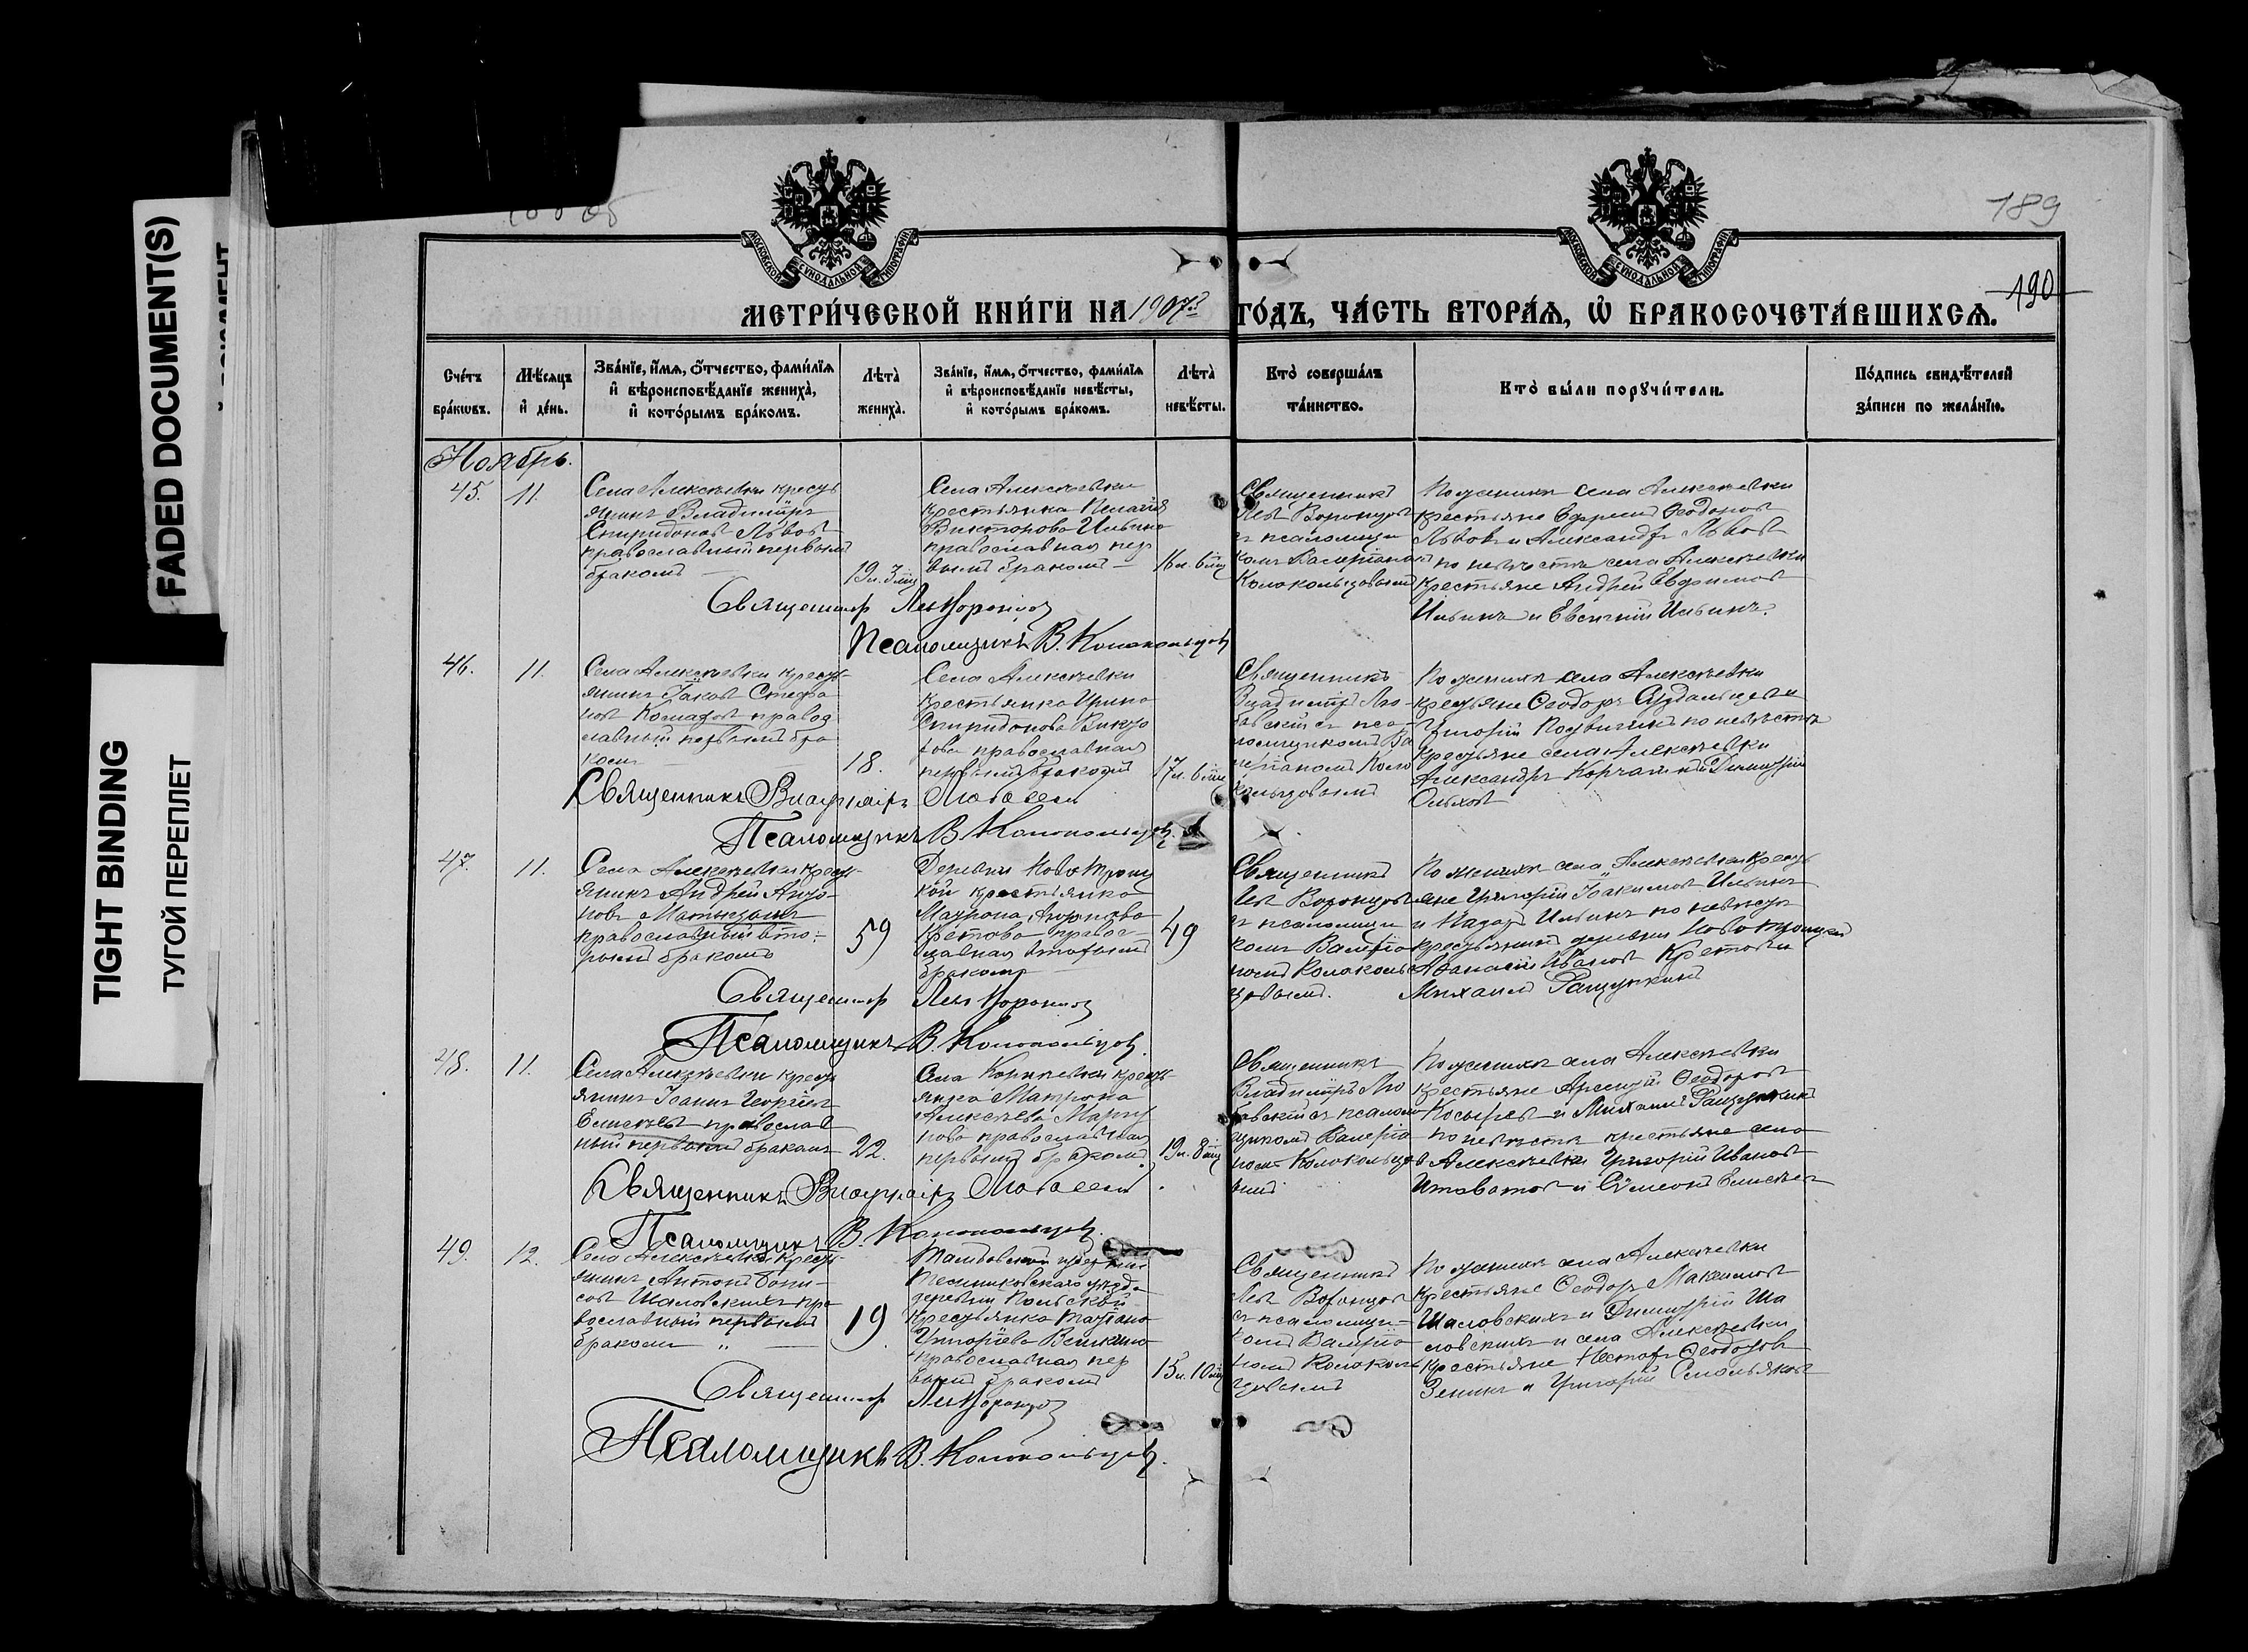 FADED DOCUMENT(S)
TIGHT BINDING
ТУГОЙ ПЕРЕПЛЕТ
189
190
МОСКОВСКОЙ СѴНОДАЛЬНОЙ ТИПОГРАФІИ
МОСКОВСКОЙ СѴНОДАЛЬНОЙ ТИПОГРАФІИ
МЕТРИ́ЧЕСКОЙ КНИ́ГИ НА 1907й ГО́ДЪ, ЧА́СТЬ ВТОРА́Ѧ, Ѽ БРАКОСОЧЕТА́ВШИХСѦ.
Сче́тъ бра́кѡвъ.
Мѣ́сѧцъ и҆ де́нь.
Зва́нїе, и҆́мѧ, ѻ҆́тчество, фами́лїѧ и҆ вѣроисповѣ́данїе жениха̀, и҆ кото́рымъ бра́комъ.
Лѣта̀ жениха̀.
Зва́нїе, и҆́мѧ, ѻ҆́тчество, фами́лїѧ и҆ вѣроисповѣ́данїе невѣ́сты, и҆ кото́рымъ бра́комъ.
Лѣта̀ невѣ́сты.
Кто̀ соверша́лъ та́инство.
Кто̀ бы́ли порꙋчи́тели.
По́дпись свидѣ́телей за́писи по жела́нїю.
Ноябрь.
45.
11.
Села Алексѣевки кресть
янинъ Владиміръ
Спиридоновъ Львовъ
православный первымъ
бракомъ
19 л. 3 мц
Села Алексѣевки
крестьянка Пелагія
Викторова Ильина
православная пер
вымъ бракомъ
16 л. 6 мц
Священникъ
Левъ Воронцовъ
съ псаломщи
комъ Валеріаномъ
Колокольцовымъ
По женихѣ села Алексѣевки
крестьяне Ефремъ Ѳеодоровъ
Львовъ и Александръ Львовъ
по невѣстѣ села Алексѣевки
крестьяне Андрей Евфимовъ
Ильинъ и Евгеній Ильинъ.
Священникъ Левъ Воронцовъ
Псаломщикъ В. Колокольцовъ
46.
11.
Села Алексѣевки кресть
янинъ Іаковъ Стефа
новъ правос
лавный первымъ бра
комъ
18.
Села Алексѣевки
крестьянка Ирина
Спиридонова
православная
первымъ бракомъ
17 л. 6 мц
Священникъ
Владиміръ Лю
бавскій съ пса
ломщикомъ Ва
леріаномъ Коло
кольцовымъ
По женихѣ села Алексѣевки
крестьяне Ѳеодоръ Суздальцевъ и
Григорій по невѣстѣ
крестьяне села Алексѣевки
Александръ и Димитрій
Ольховъ
Священникъ Владиміръ Любавскій
Псаломщикъ В. Колокольцовъ.
47.
11.
Села Алексѣевки кресть
янинъ Андрей Анто
новъ
православный вто
рымъ бракомъ
59
Деревни Новотроиц
кой крестьянка
Матрона
Кретова правос
лавная вторымъ
бракомъ
49
Священникъ
Левъ Воронцовъ
съ псаломщи
комъ Валеріа
номъ Колоколь
цовымъ.
По женихѣ села Алексѣевки кресть
яне Григорій Іоакимовъ Ильинъ
и Назаръ Ильинъ по невѣстѣ
крестьянинъ деревни Новотроицкой
Аѳанасій Ивановъ Кретовъ и
Михаилъ Ращупкинъ
Священникъ Левъ Воронцовъ
Псаломщикъ В. Колокольцовъ.
48.
11.
Села Алексѣевки кресть
янинъ Іоаннъ Георгіевъ
Елисѣевъ православ
ный первымъ бракомъ
22.
Села Корниевки кресть
янка Матрона
Алексѣева Марты
нова православная
первымъ бракомъ.
19 л. 8 мц
Священникъ
Владиміръ Лю
бавскій съ псалом
щикомъ Валеріа
номъ Колокольцо
вымъ
По женихѣ села Алексѣевки
крестьяне Арсеній Ѳеодоровъ
Косыревъ и Михаилъ Ращупкинъ
по невѣстѣ крестьяне села
Алексѣевки Григорій Ивановъ
и Сѵмеонъ Елисѣевъ
Священникъ Владиміръ Любавскій
Псаломщикъ В. Колокольцовъ.
49.
12.
Села Алексѣевки кресть
янинъ Антонъ Бори
совъ Шаловскихъ пра
вославный первымъ
бракомъ „
19
Тамбовской губерніи
Темниковскаго уѣзда
деревни Польской
крестьянка Татіана
Григоріева
православная пер
вымъ бракомъ
15 л. 10 мц
Священникъ
Левъ Воронцовъ
съ псаломщи
комъ Валеріа
номъ Колоколь
цовымъ
По женихѣ села Алексѣевки
крестьяне Ѳеодоръ Максимовъ
Шаловскихъ и Димитрій Ша
ловскихъ и села Алексѣевки
крестьяне Несторъ Ѳеодоровъ
Зенинъ и Григорій Смольяковъ
Священникъ Левъ Воронцовъ
Псаломщикъ В. Колокольцовъ.